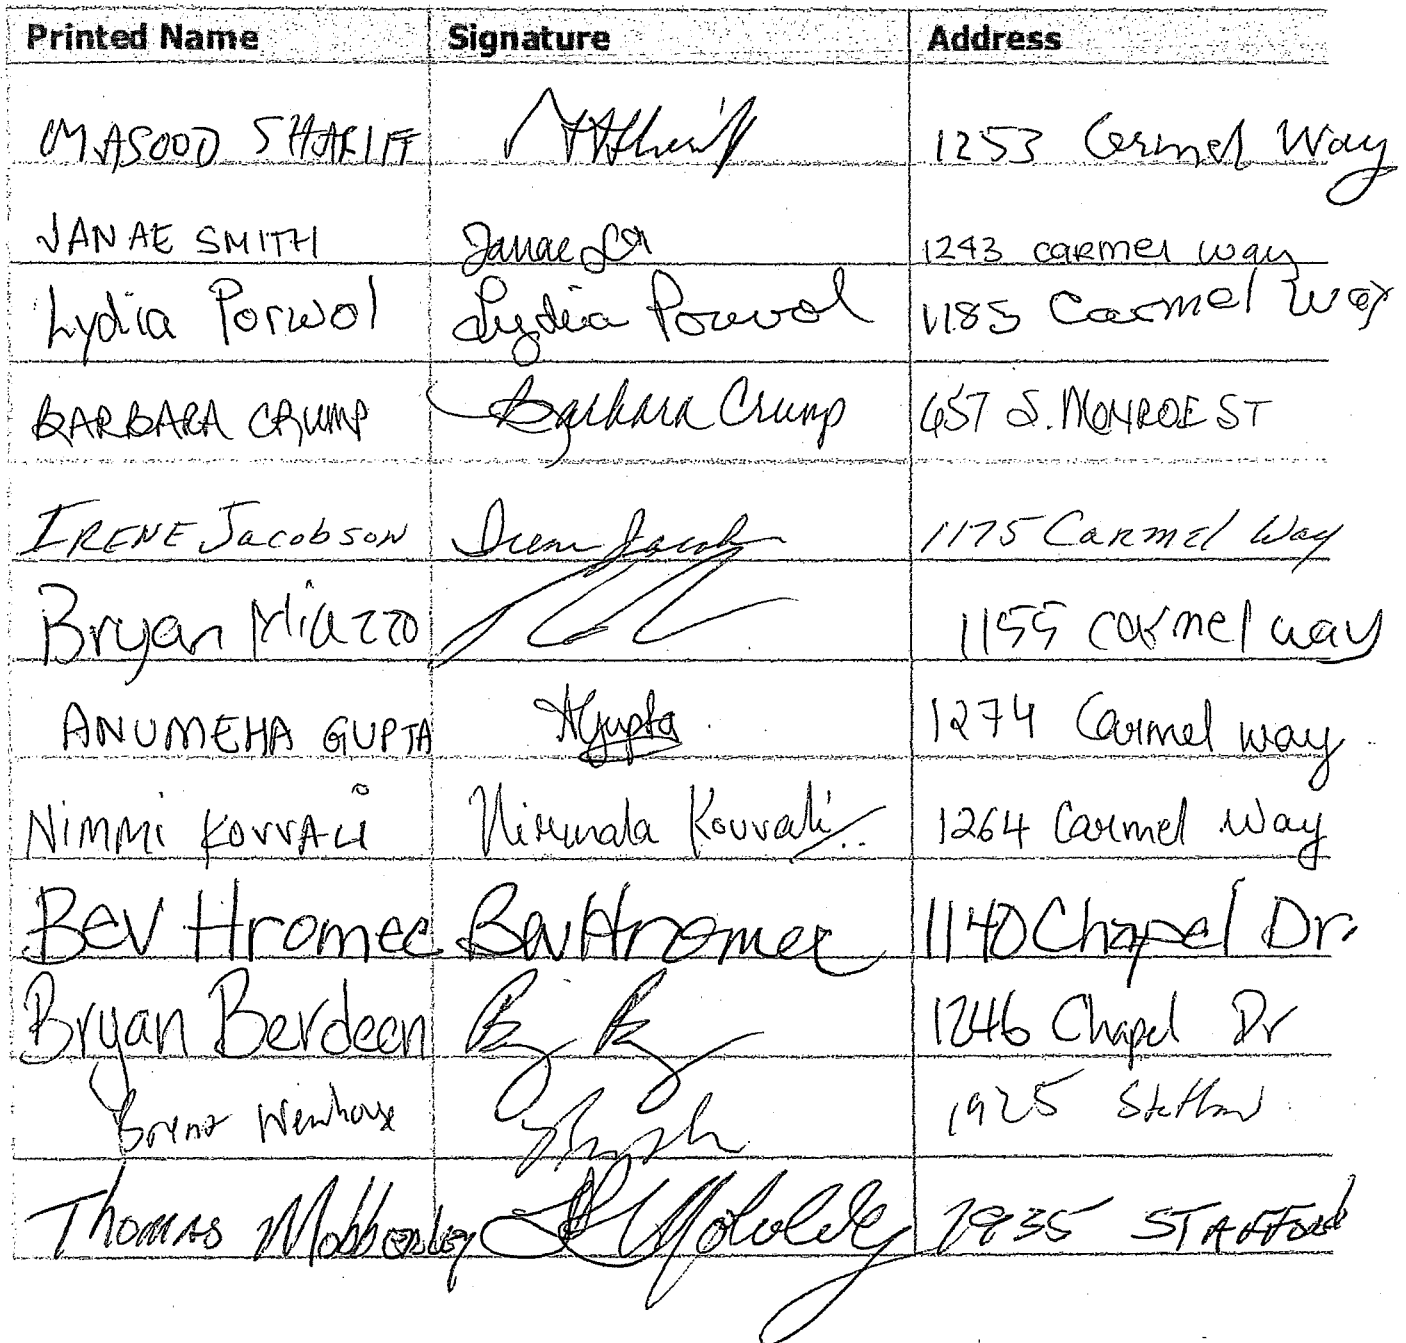 Printed Name Signature Address
MASOOD SHARIFF 1253 Carmel Way
JANAE SMITH Janae 1243 carmel way
Lydia Porwol Lydia Porwol 1185 Carmel Way
BARBARA CRUMP Barbara Crump 657 S. MONROE ST
IRENE Jacobson Irene Jacob 1175 Carmel Way
Bryan Miazzo 1155 carmel way
ANUMEHA GUPTA AGupta 1274 Carmel way
NIMMI KOVVALI Nirmala Kovvali 1264 Carmel Way
Bev Hromec Bev Hromec 1140 Chapel Dr.
Bryan Berdeen 1246 Chapel Dr
1925
Thomas Mobberley 1935 STAFFORD